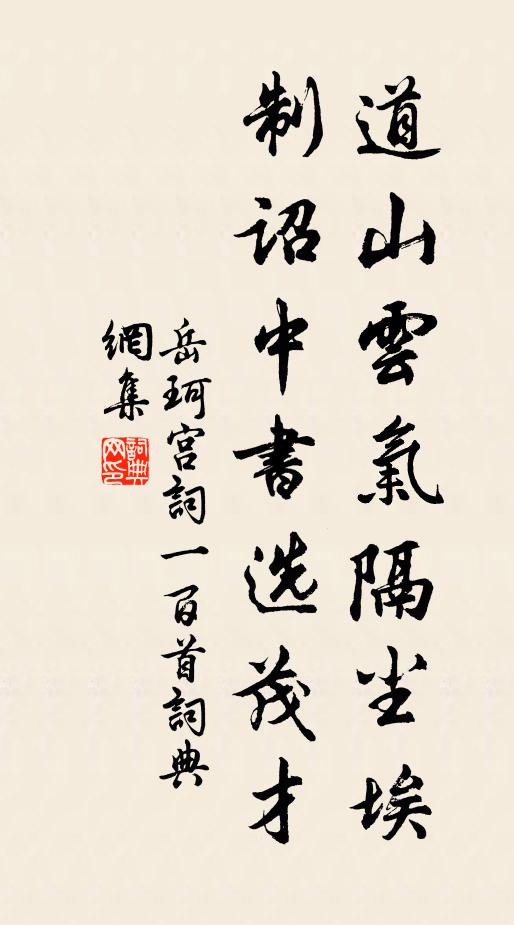 道山雲氣隔尘埃
制詔中書选茂才
岳珂宫詞一百首詞典
網集
詞典
网印